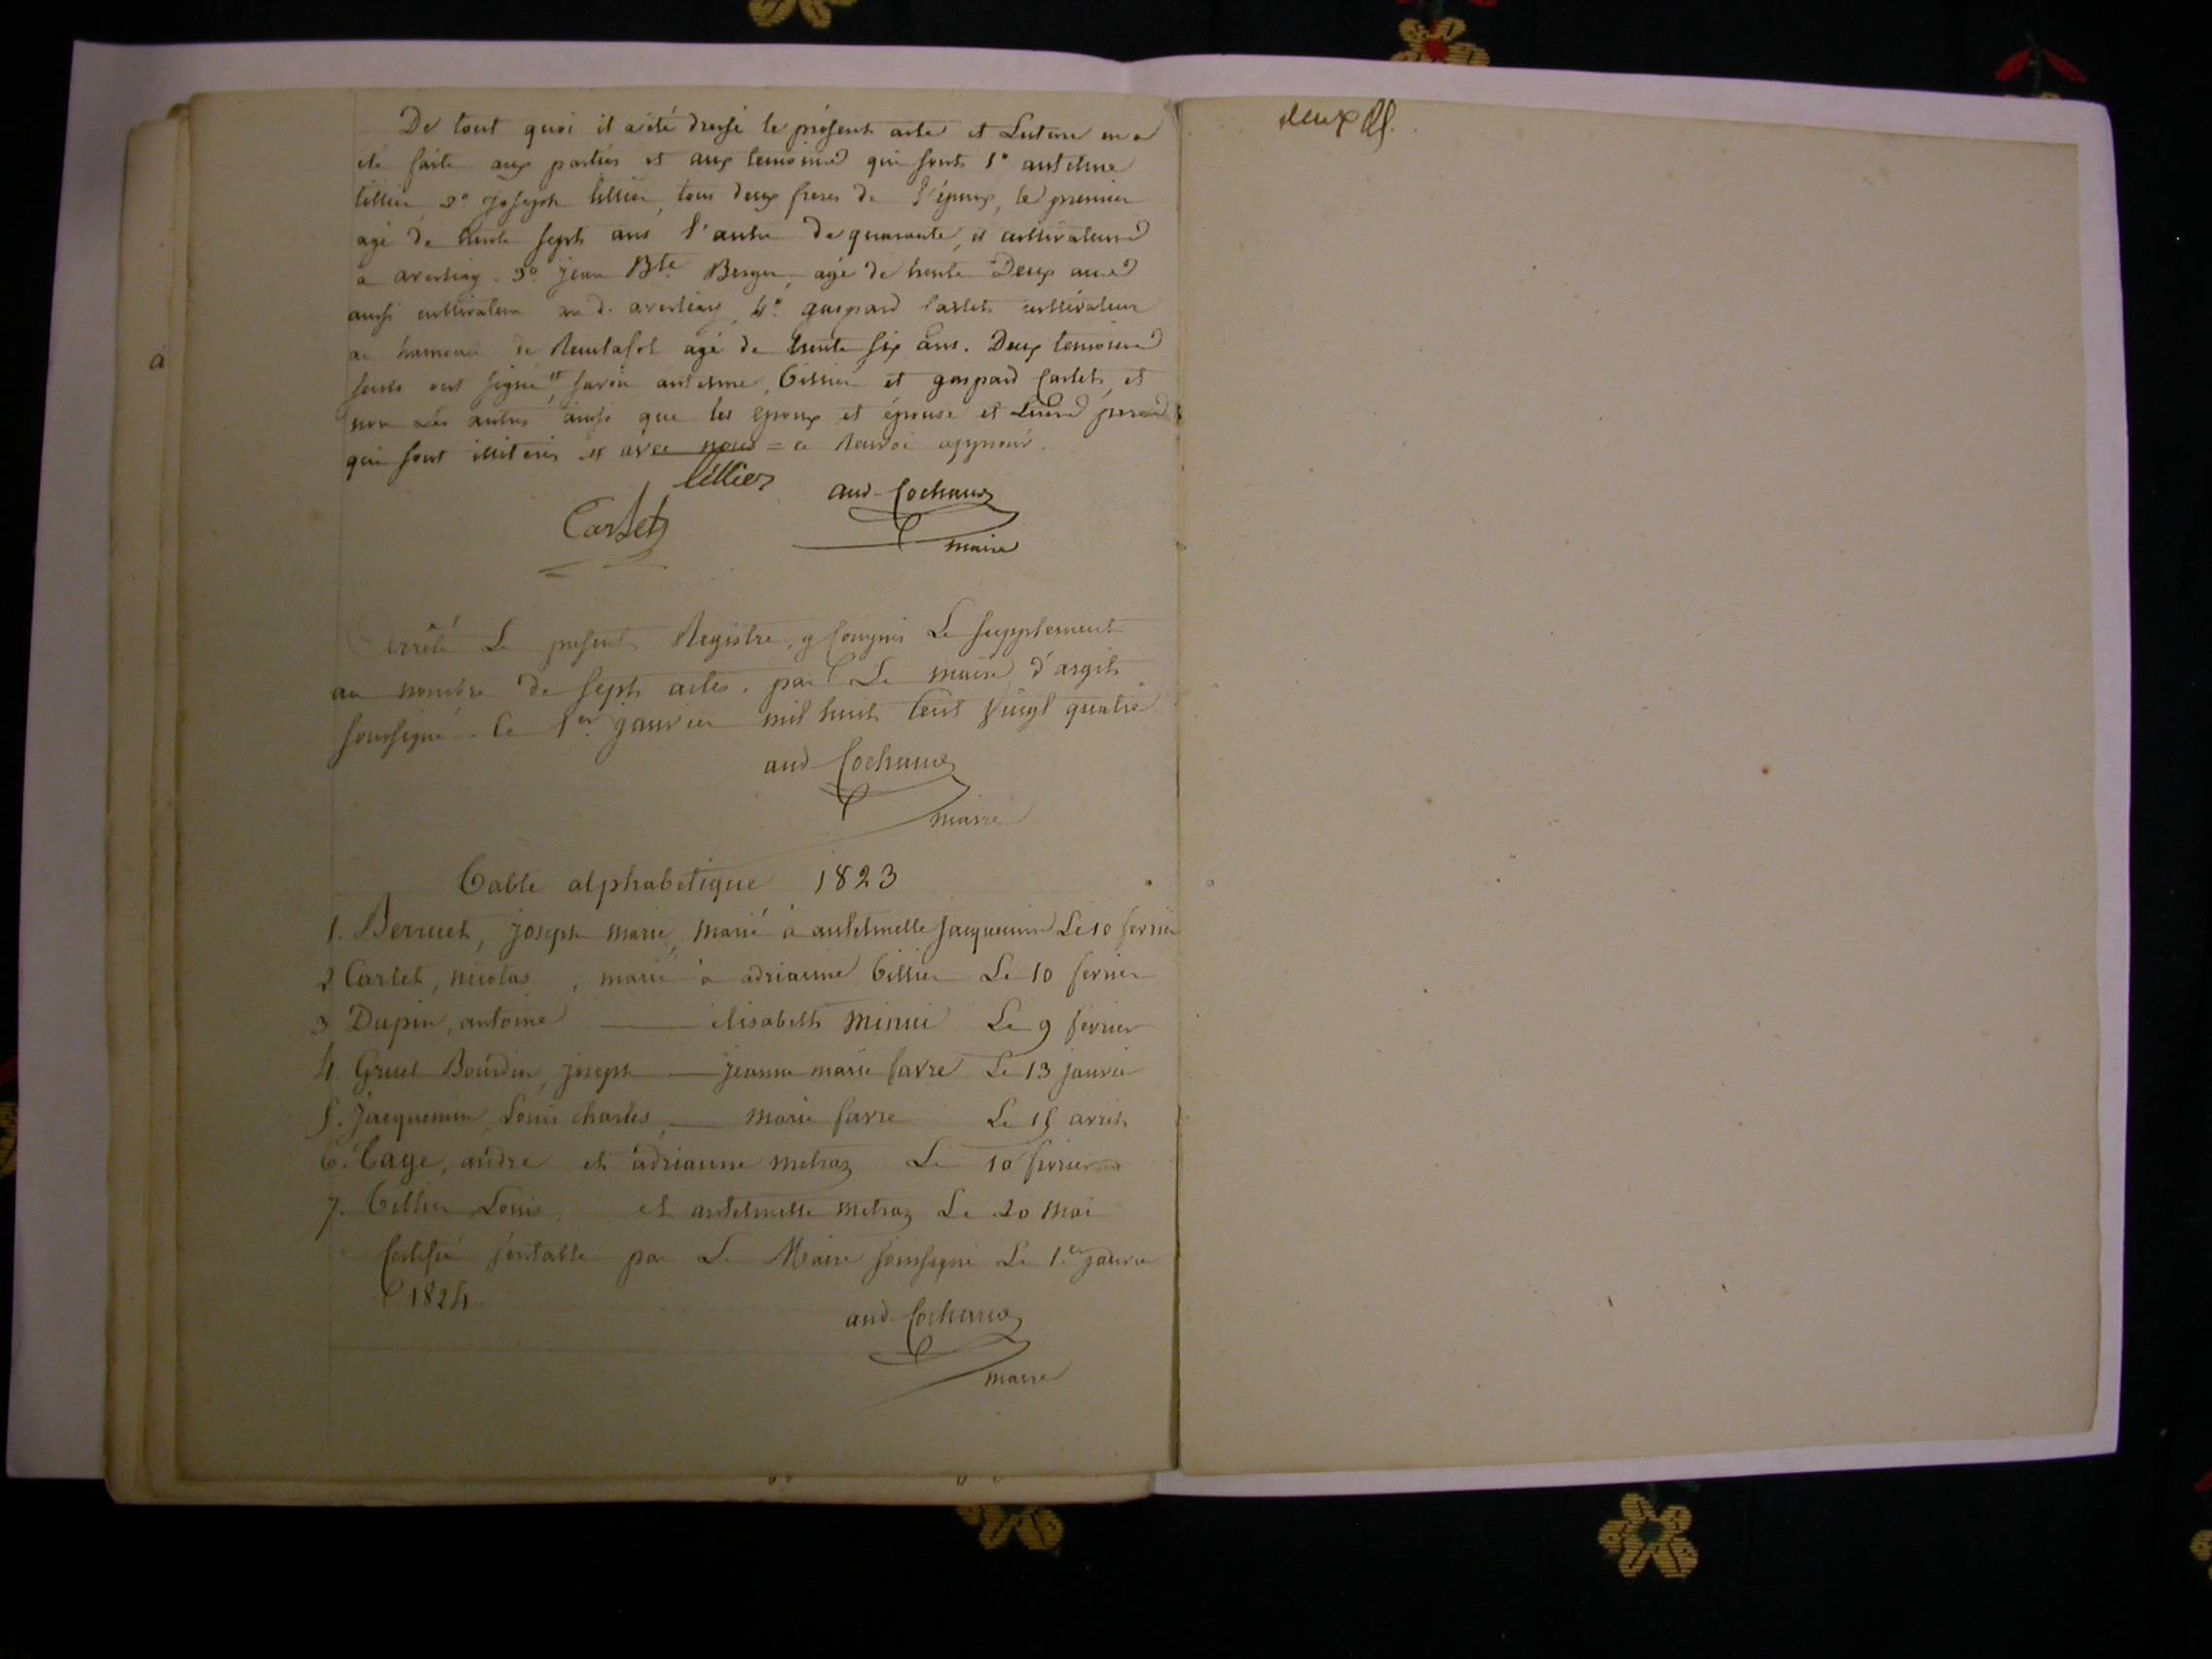 De tout quoi il a été dressé le présent acte et Lecture en a
été faite aux parties et aux temoins qui sont 1° antelme
tillier 2° joseph tillier, tous deux freres de l'époux, le premier
agé de trente sept ans l'autre de quarante, et cultivateurs
à 3° jean Bte Berger, agé de trente Deux ans
aussi cultivateur au d. 4° gaspard Carlet cultivateur
au hameau de agé de trente six ans. Deux temoins
seuls ont signé # savoir antelme tillier et gaspard Carlet, et
non Les autres ainsi que les epoux et épouse et
qui sont # avec nous = ce renvoi approuvé.
tillier
Carlet
aud-Cochaux
maire
Arrêté Le present Registre, y compris Le supplement
au nombre de sept actes, par Le maire d'argit
soussigné. Ce 1er janvier mil huit Cent Vingt quatre
aud-Cochaux
maire
Table alphabetique 1823
1. Berruet, joseph marie, marié à antelmette jacquemin Le 10 fevrier
2 Carlet, nicolas, marié à adrianne tillier Le 10 fevrier
3 Dupin, antoine — elisabeth Le 9 fevrier
4. Gruel Bourdin, joseph — jeanne marie favre Le 13 janvier
5. Jacquemin, Louis charles, — marie favre Le 15 avril
6. Tage, andre et adrianne metraz Le 10 fevrier
7. Tillier Louis, et antelmette metraz Le 20 Mai
Certifié veritable par Le Maire soussigné Le 1.er janvier
1824
aud-Cochaux
maire
deux
à